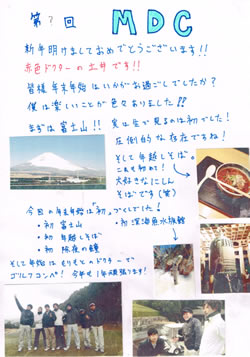 第?回 MDC
新年明けましておめでとうございます!!
赤色ドクターの土井です!!
皆様年末年始はいかがお過ごしでしたか?
僕は楽しいことが色々ありました!!
まずは富士山!! 実は生で見るのは初でした!
圧倒的な存在ですね!
そして年越しそば。
これも初め!
大好きなにしん
そばです(笑)
今回の年末年始は「初」づくしでした!
・初 富士山
・初 年越しそば
・初 除夜の鐘
・初 深海魚水族館
そして年始はもりもとのドクターで
ゴルフコンペ! 今年も1年頑張ります!